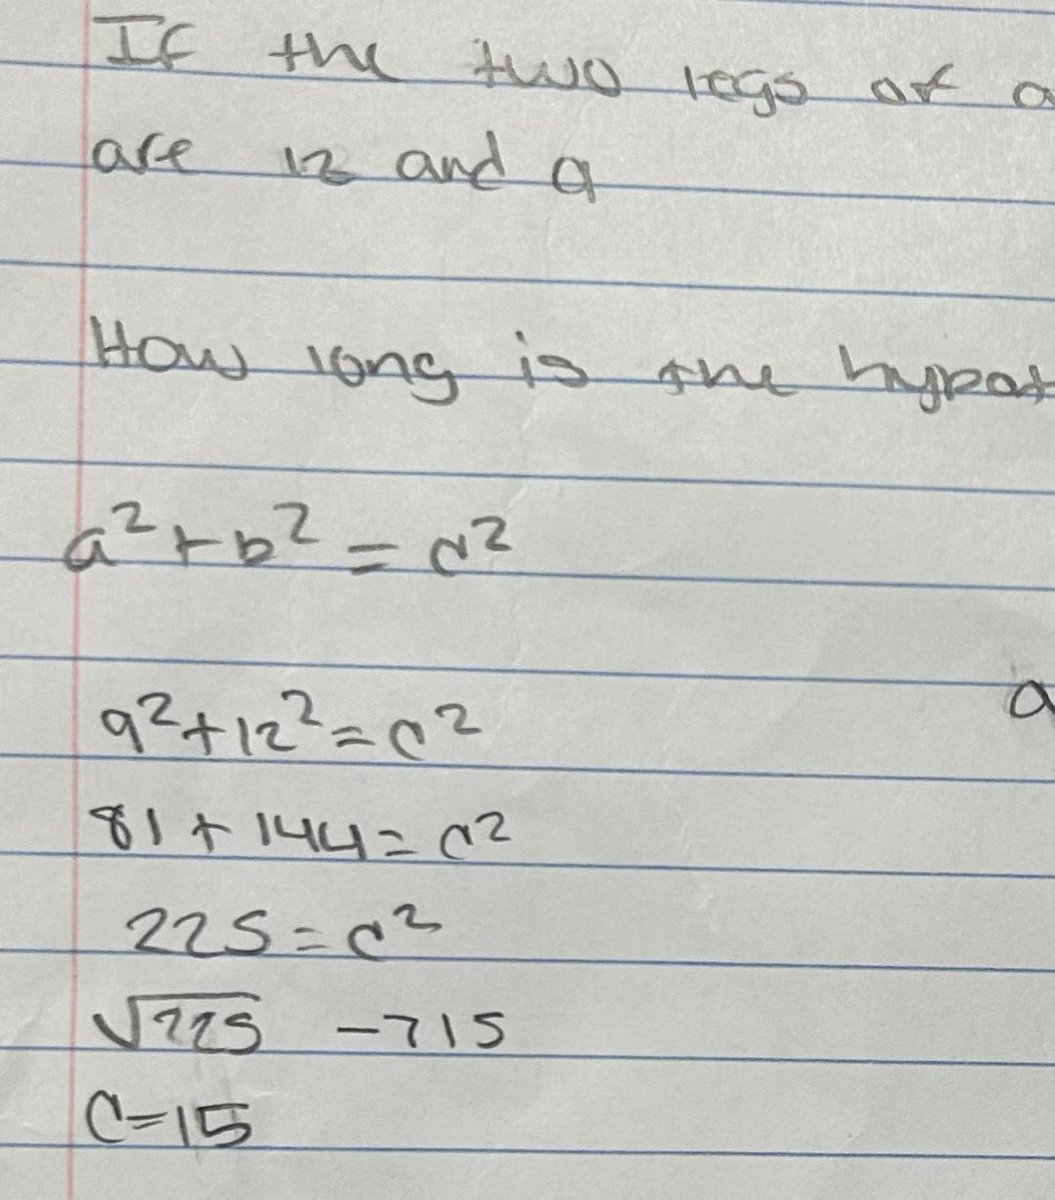 If the two legs of a
are 12 and 9
How long is the hypot
a² + b² = c²
9
9² + 12² = c²
81 + 144 = c²
225 = c²
√225 → 15
c = 15